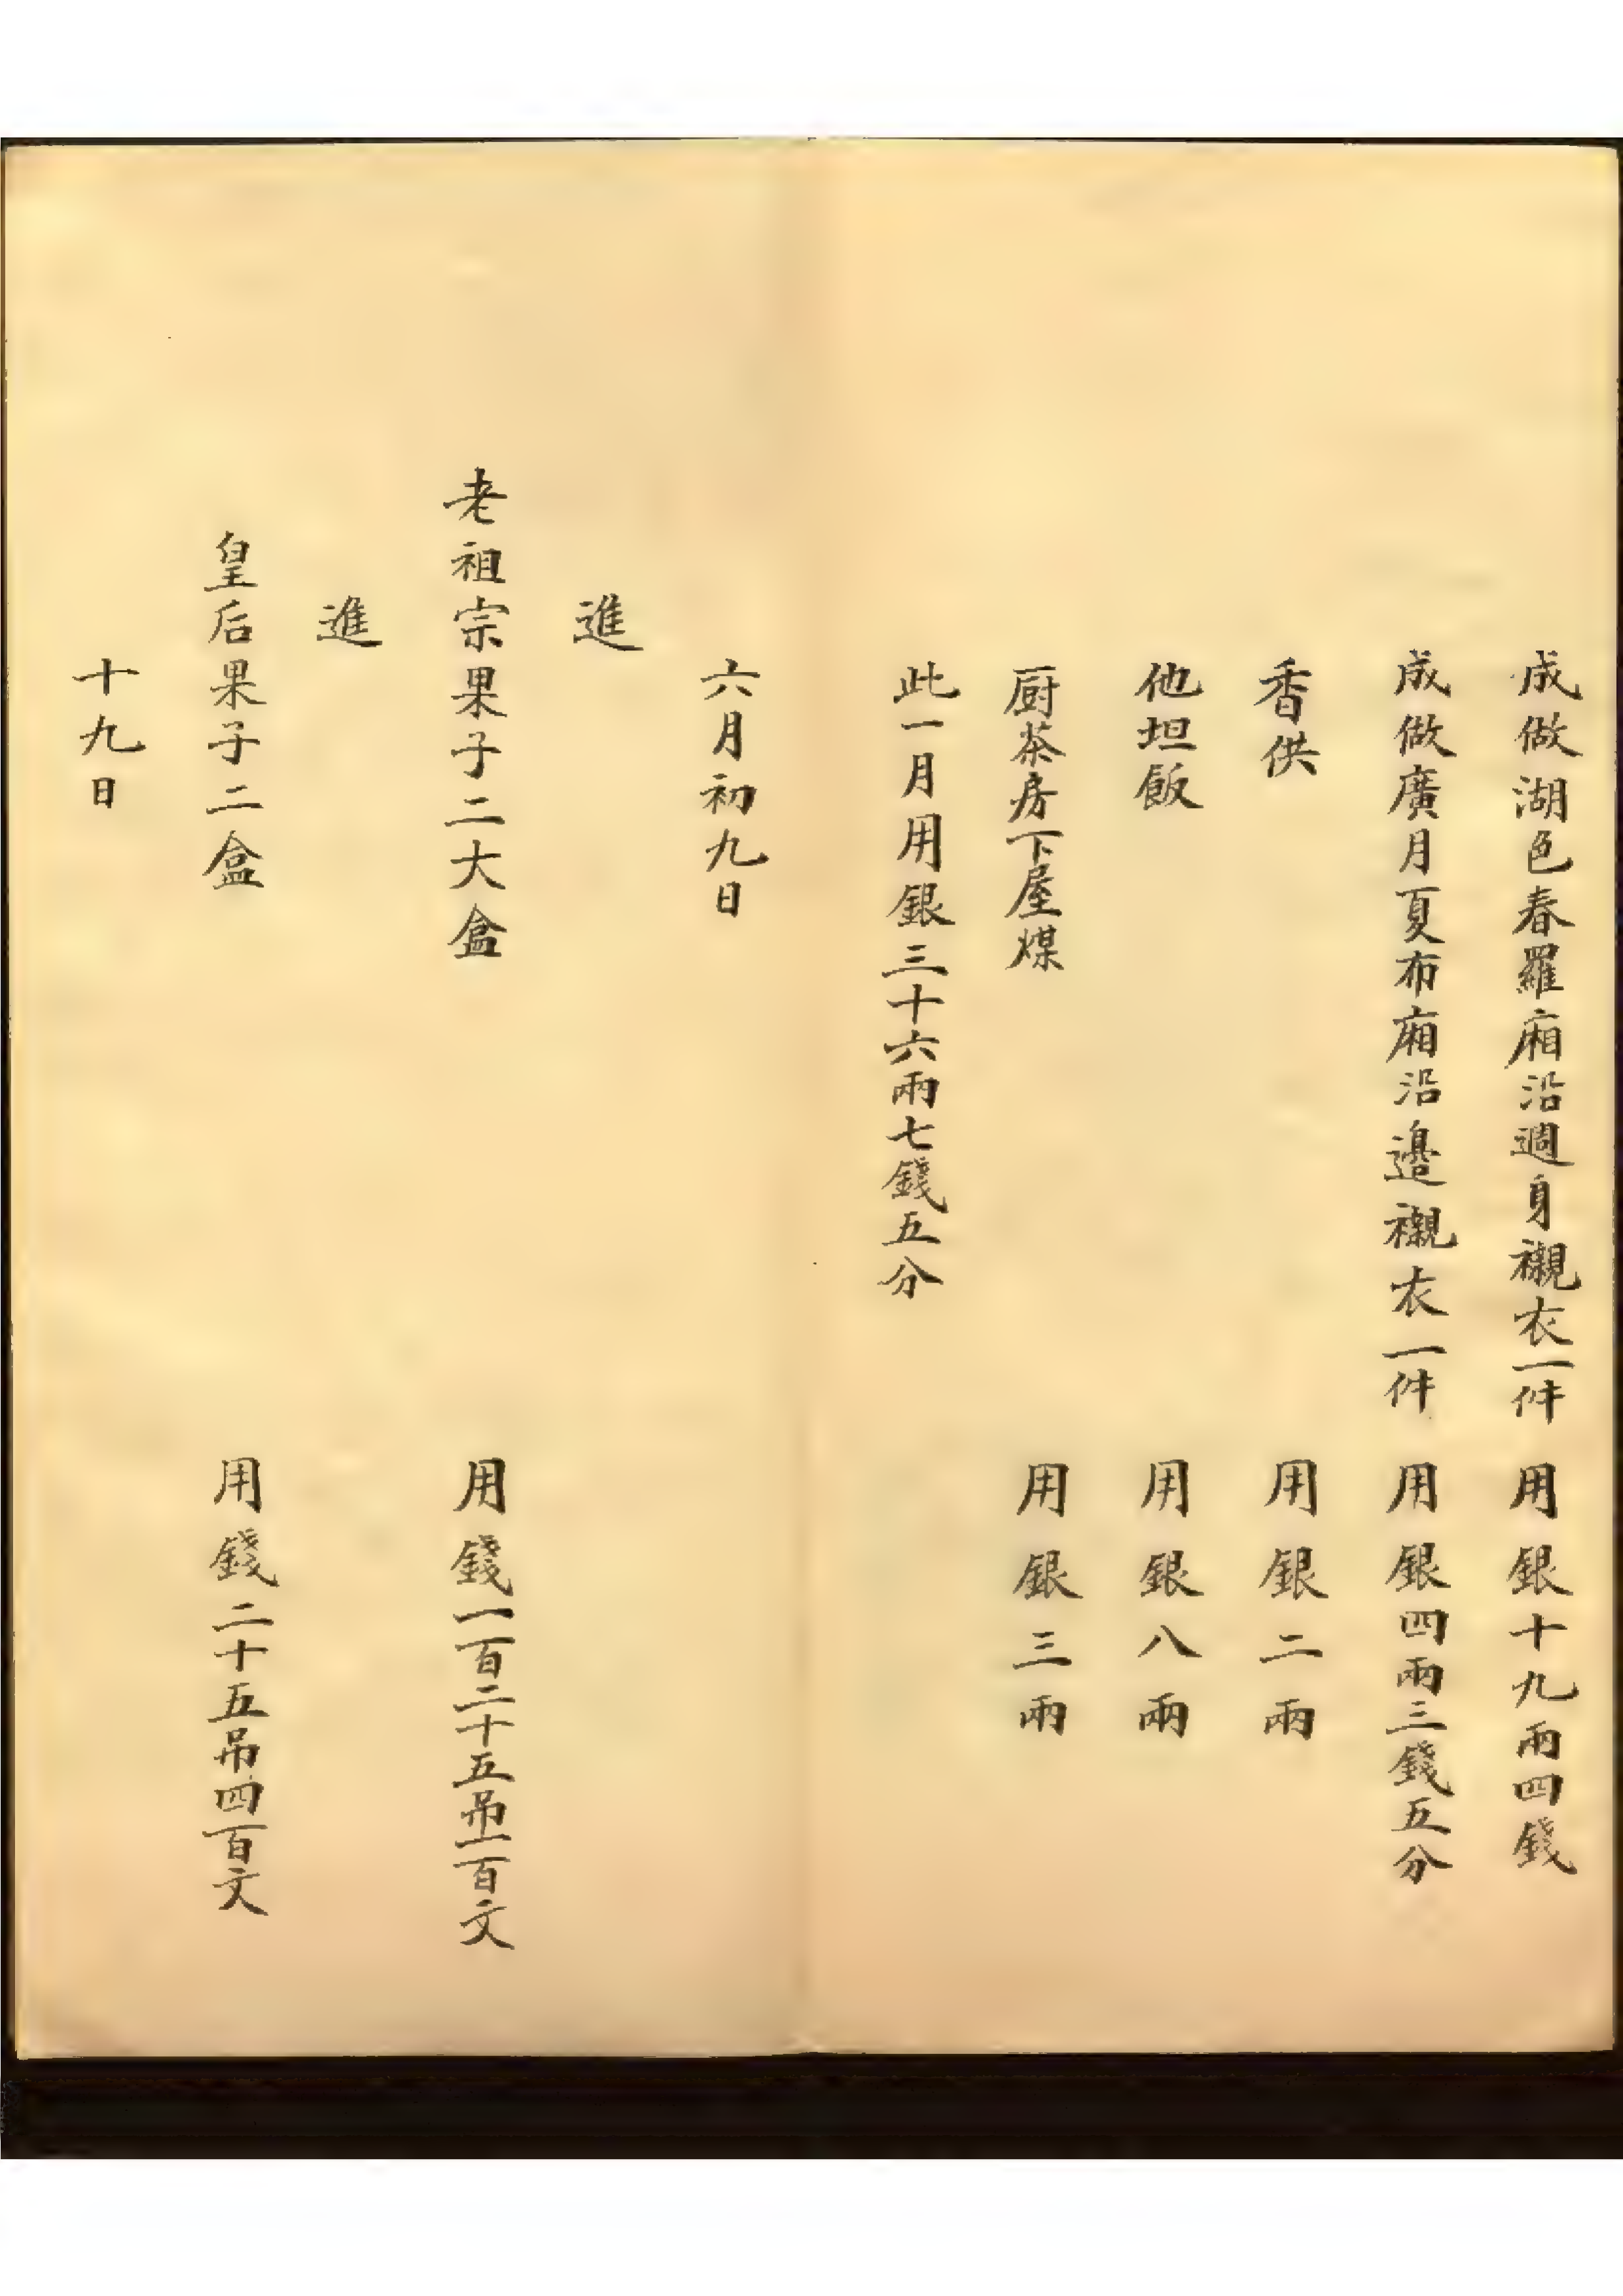 成做湖色春羅廂沿週身襯衣一件 用銀十九兩四錢
成做廣月夏布廂沿邊襯衣一件 用銀四兩三錢五分
香供 用銀二兩
他坦飯 用銀八兩
厨茶房下屋煤 用銀三兩
此一月用銀三十六兩七錢五分
六月初九日
進
老祖宗果子二大盒 用錢一百二十五吊一百文
進
皇后果子二盒 用錢二十五吊四百文
十九日